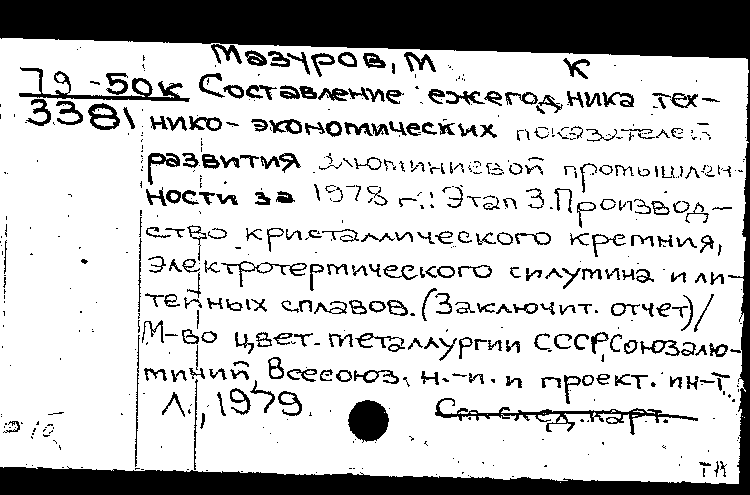 Мазуров, М К
79-50к Составление ежегодника тех-
3381 нико-экономических показателей
развития алюминиевой промышлен-
ности за 1978 г.: Этап 3. Производ-
ство кристаллического кремния,
электротермического силумина и ли-
тейных сплавов. (Заключит. отчет) /
М-во цвет. металлургии СССР, Союзалю-
миний, Всесоюз. н.-и. и проект. ин-т...
Л., 1979
См. след. карт.
ТА